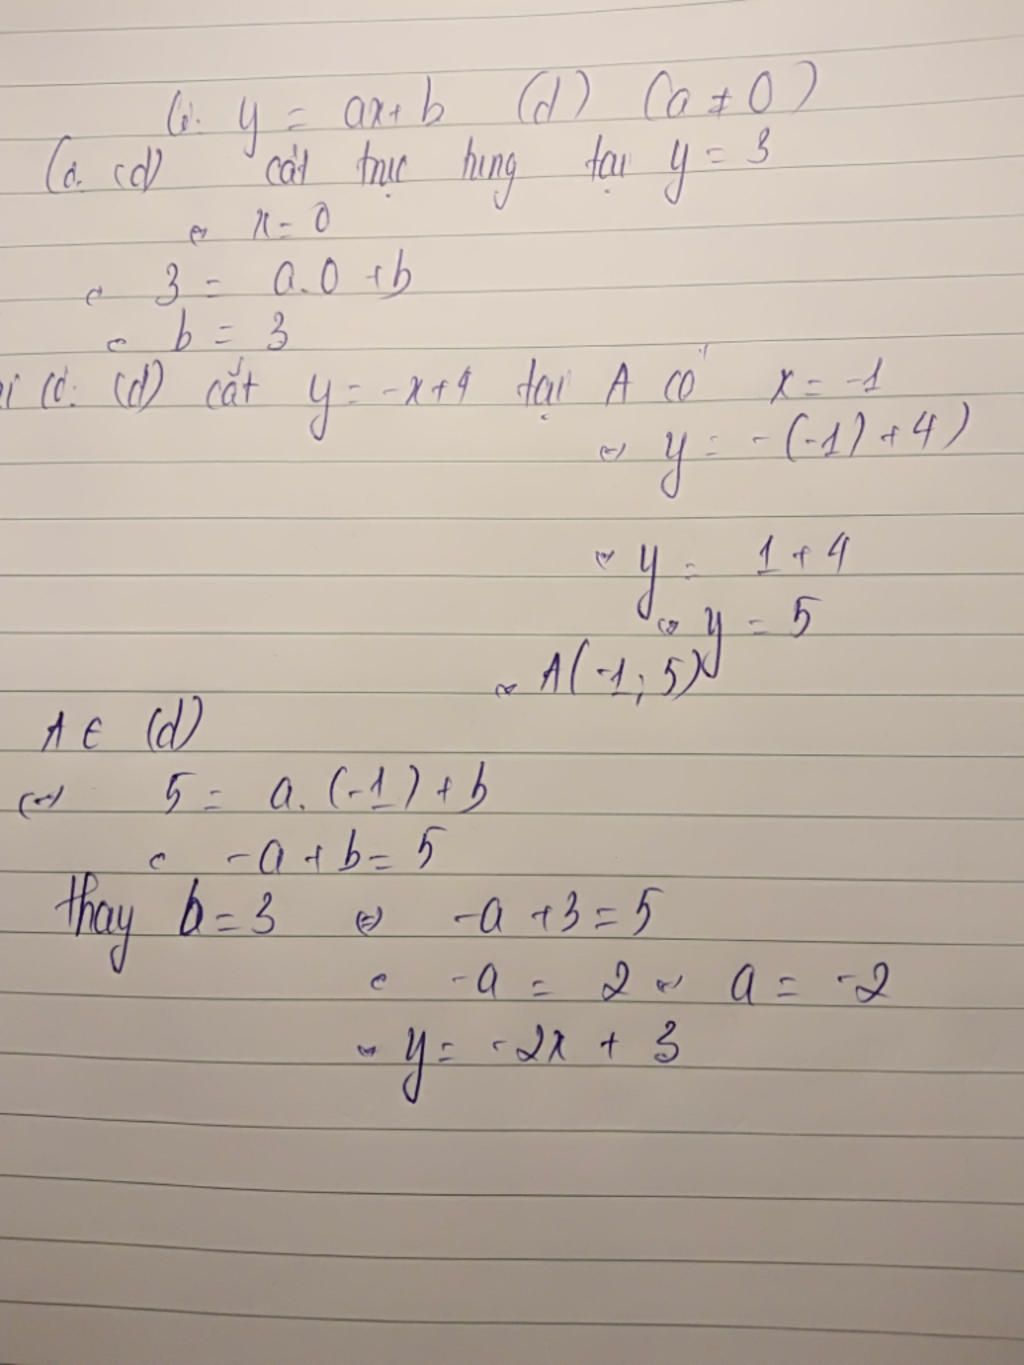 Có. y = ax + b (d) (a ≠ 0)
Có. (d) cắt trục tung tại y = 3
⇔ x = 0
⇔ 3 = a.0 + b
⇔ b = 3
Có: (d) cắt y = -x + 4 tại A có x = -1
⇔ y = -(-1) + 4)
⇔ y = 1 + 4
⇔ y = 5
⇔ A(-1; 5)
A ∈ (d)
⇔ 5 = a.(-1) + b
⇔ -a + b = 5
thay b = 3 ⇔ -a + 3 = 5
⇔ -a = 2 ⇔ a = -2
⇔ y = -2x + 3